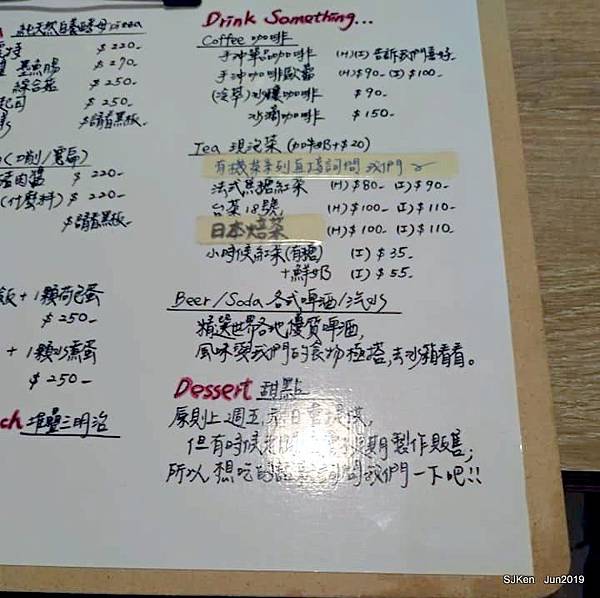 純天然白養酵母pizza
$220-
墨魚腸 $270-
綜合菇 $250-
起司 $250-
$請看黑板-
$220-
(什麼料) $220-
$請看黑板-
飯+1顆荷包蛋
$250-
+1顆炒蛋
$250-
ch 堆疊三明治
Drink Something...
Coffee 咖啡
手沖單品咖啡 (H)(I) 告訴我們喜好-
手沖咖啡歐蕾 (H)$90- (I)$100-
(冷萃)冰釀咖啡 $90-
冰滴咖啡 $150-
Tea 現泡茶 (加鮮奶+$20)
有機茶系列直接詢問我們~
法式焦糖紅茶 (H)$80- (I)$90-
台茶18號 (H)$100- (I)$110-
日本焙茶 (H)$100- (I)$110-
小時候紅茶(有糖) (I)$35-
+鮮奶 (I)$55-
Beer/Soda 各式啤酒/汽水
精選世界各地優質啤酒,
風味與我們的食物極搭,去冰箱看看。
Dessert 甜點
原則上週五、六、日會提供,
但有時候 期製作販售;
所以想吃的話 問我們一下吧!!
SJKen Jun2019